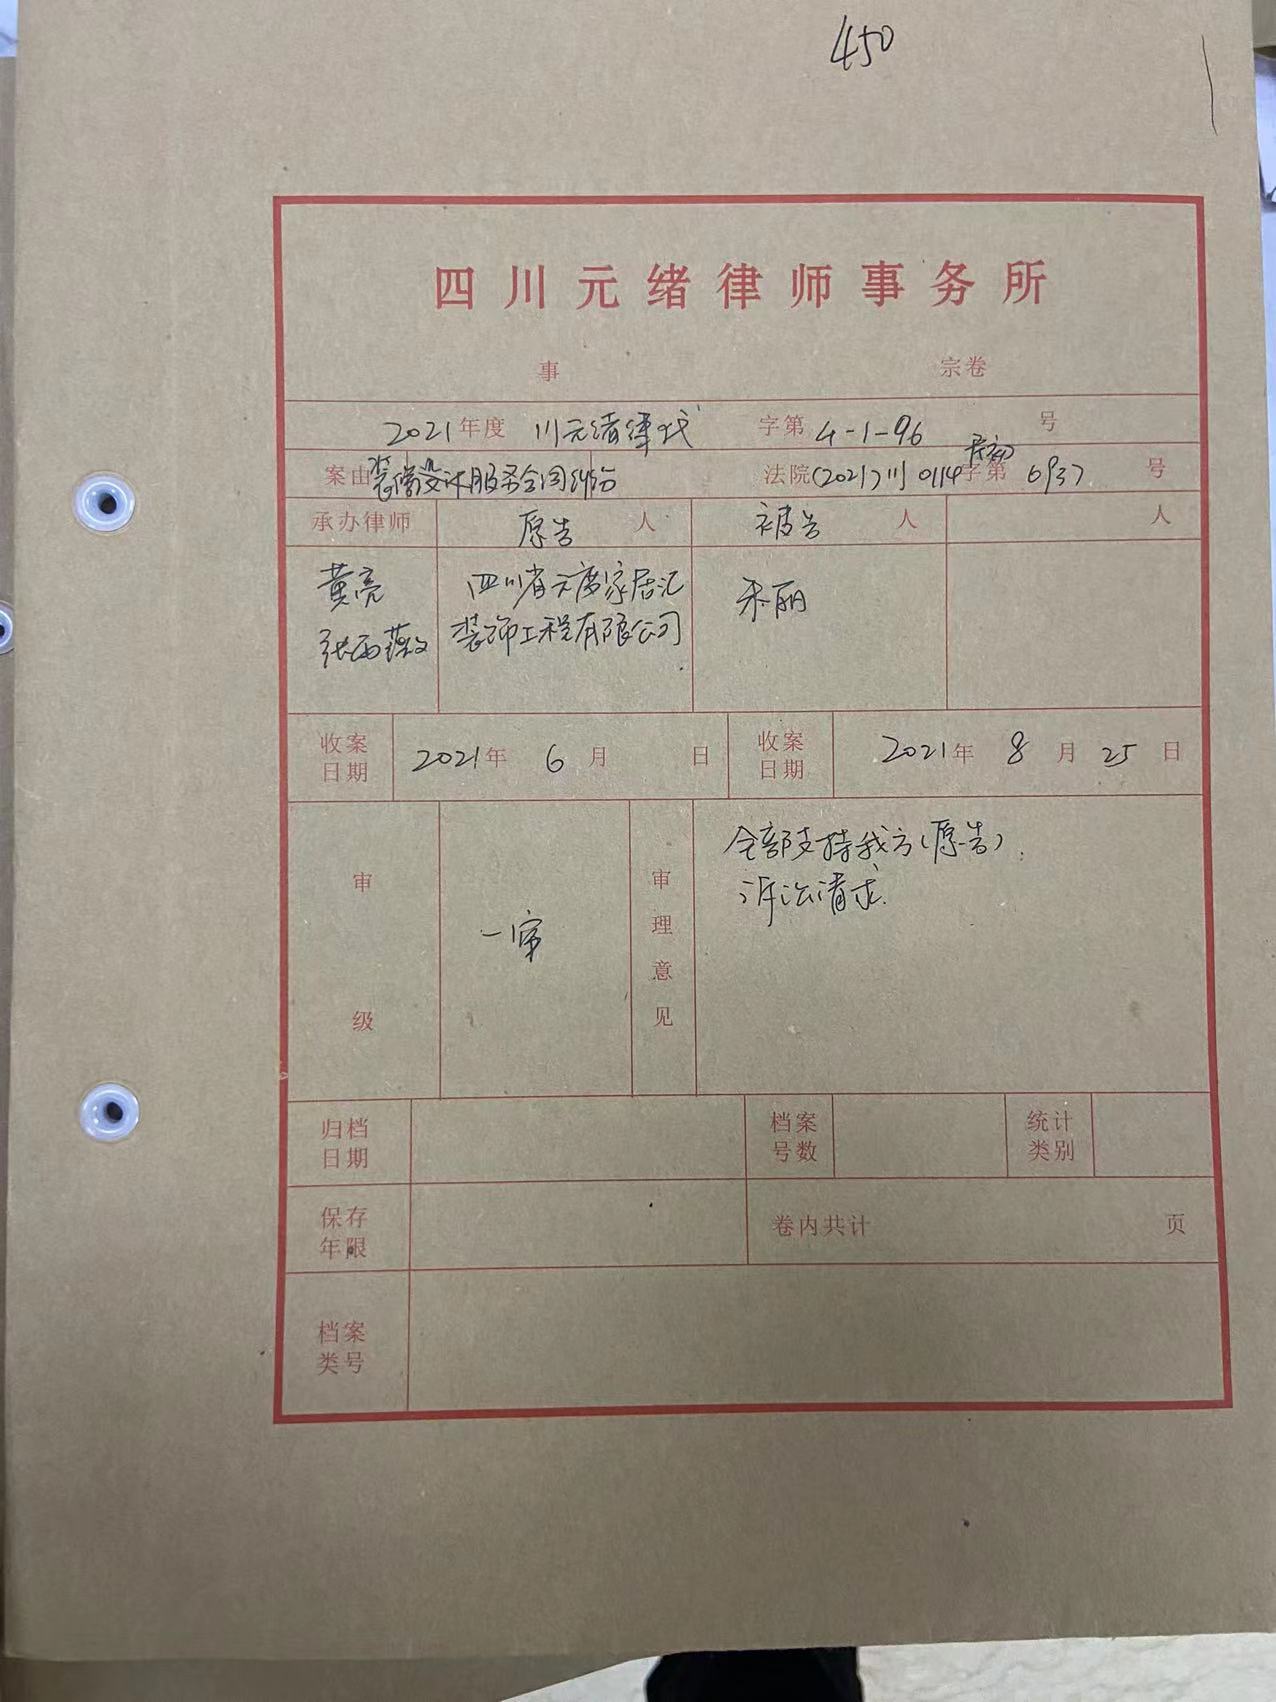 450
四川元绪律师事务所
事 宗卷
2021年度 川元绪律代 字第 4-1-96 号
案由装修设计服务合同纠纷 法院(2021)川0114民初字第 6937 号
承办律师 原告 人 被告 人 人
黄亮 四川省元度家居汇
装饰工程有限公司
张雨薇
收案日期 2021年 6月 日 收案日期 2021年 8月 25日
审级 一审 审理意见 全部支持我方(原告)
诉讼请求.
归档日期 档案号数 统计类别
保存年限 卷内共计 页
档案类号